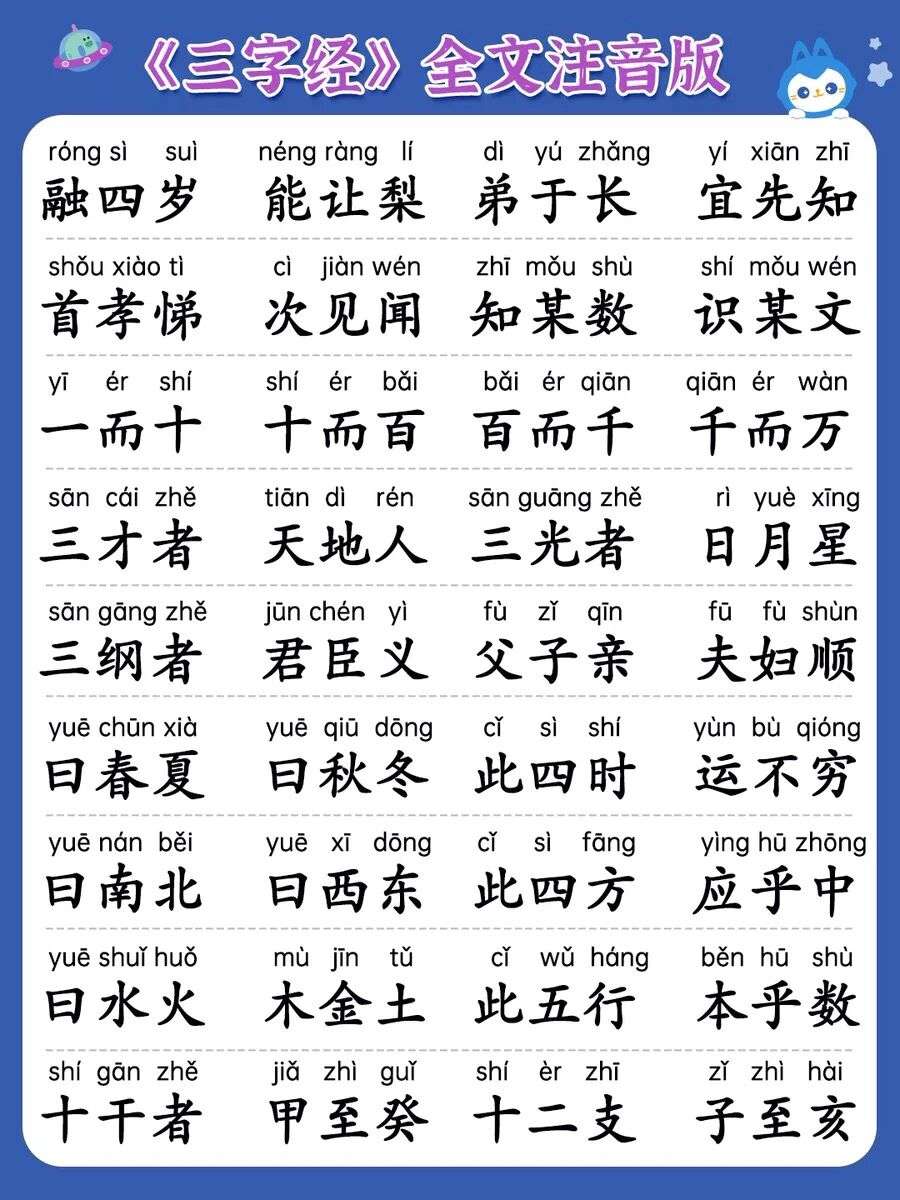 《三字经》全文注音版
róng sì suì néng ràng lí dì yú zhǎng yí xiān zhī
融四岁 能让梨 弟于长 宜先知
shǒu xiào tì cì jiàn wén zhī mǒu shù shí mǒu wén
首孝悌 次见闻 知某数 识某文
yī ér shí shí ér bǎi bǎi ér qiān qiān ér wàn
一而十 十而百 百而千 千而万
sān cái zhě tiān dì rén sān guāng zhě rì yuè xīng
三才者 天地人 三光者 日月星
sān gāng zhě jūn chén yì fù zǐ qīn fū fù shùn
三纲者 君臣义 父子亲 夫妇顺
yuē chūn xià yuē qiū dōng cǐ sì shí yùn bù qióng
曰春夏 曰秋冬 此四时 运不穷
yuē nán běi yuē xī dōng cǐ sì fāng yìng hū zhōng
曰南北 曰西东 此四方 应乎中
yuē shuǐ huǒ mù jīn tǔ cǐ wǔ háng běn hū shù
曰水火 木金土 此五行 本乎数
shí gān zhě jiǎ zhì guǐ shí èr zhī zǐ zhì hài
十干者 甲至癸 十二支 子至亥